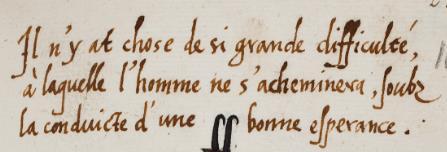 Il n'y at chose de si grande difficulté,
à laquelle l'homme ne s'acheminera, soubz
la conduicte d'une bonne esperance.